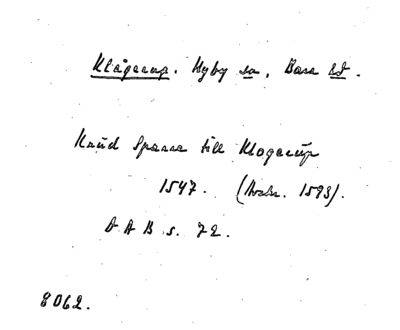 Klågerup. Hyby sn, Bara hd.
Knud Sparre till Klogerup
1547. (Avskr. 1583).
D A B s. 72.
8062.